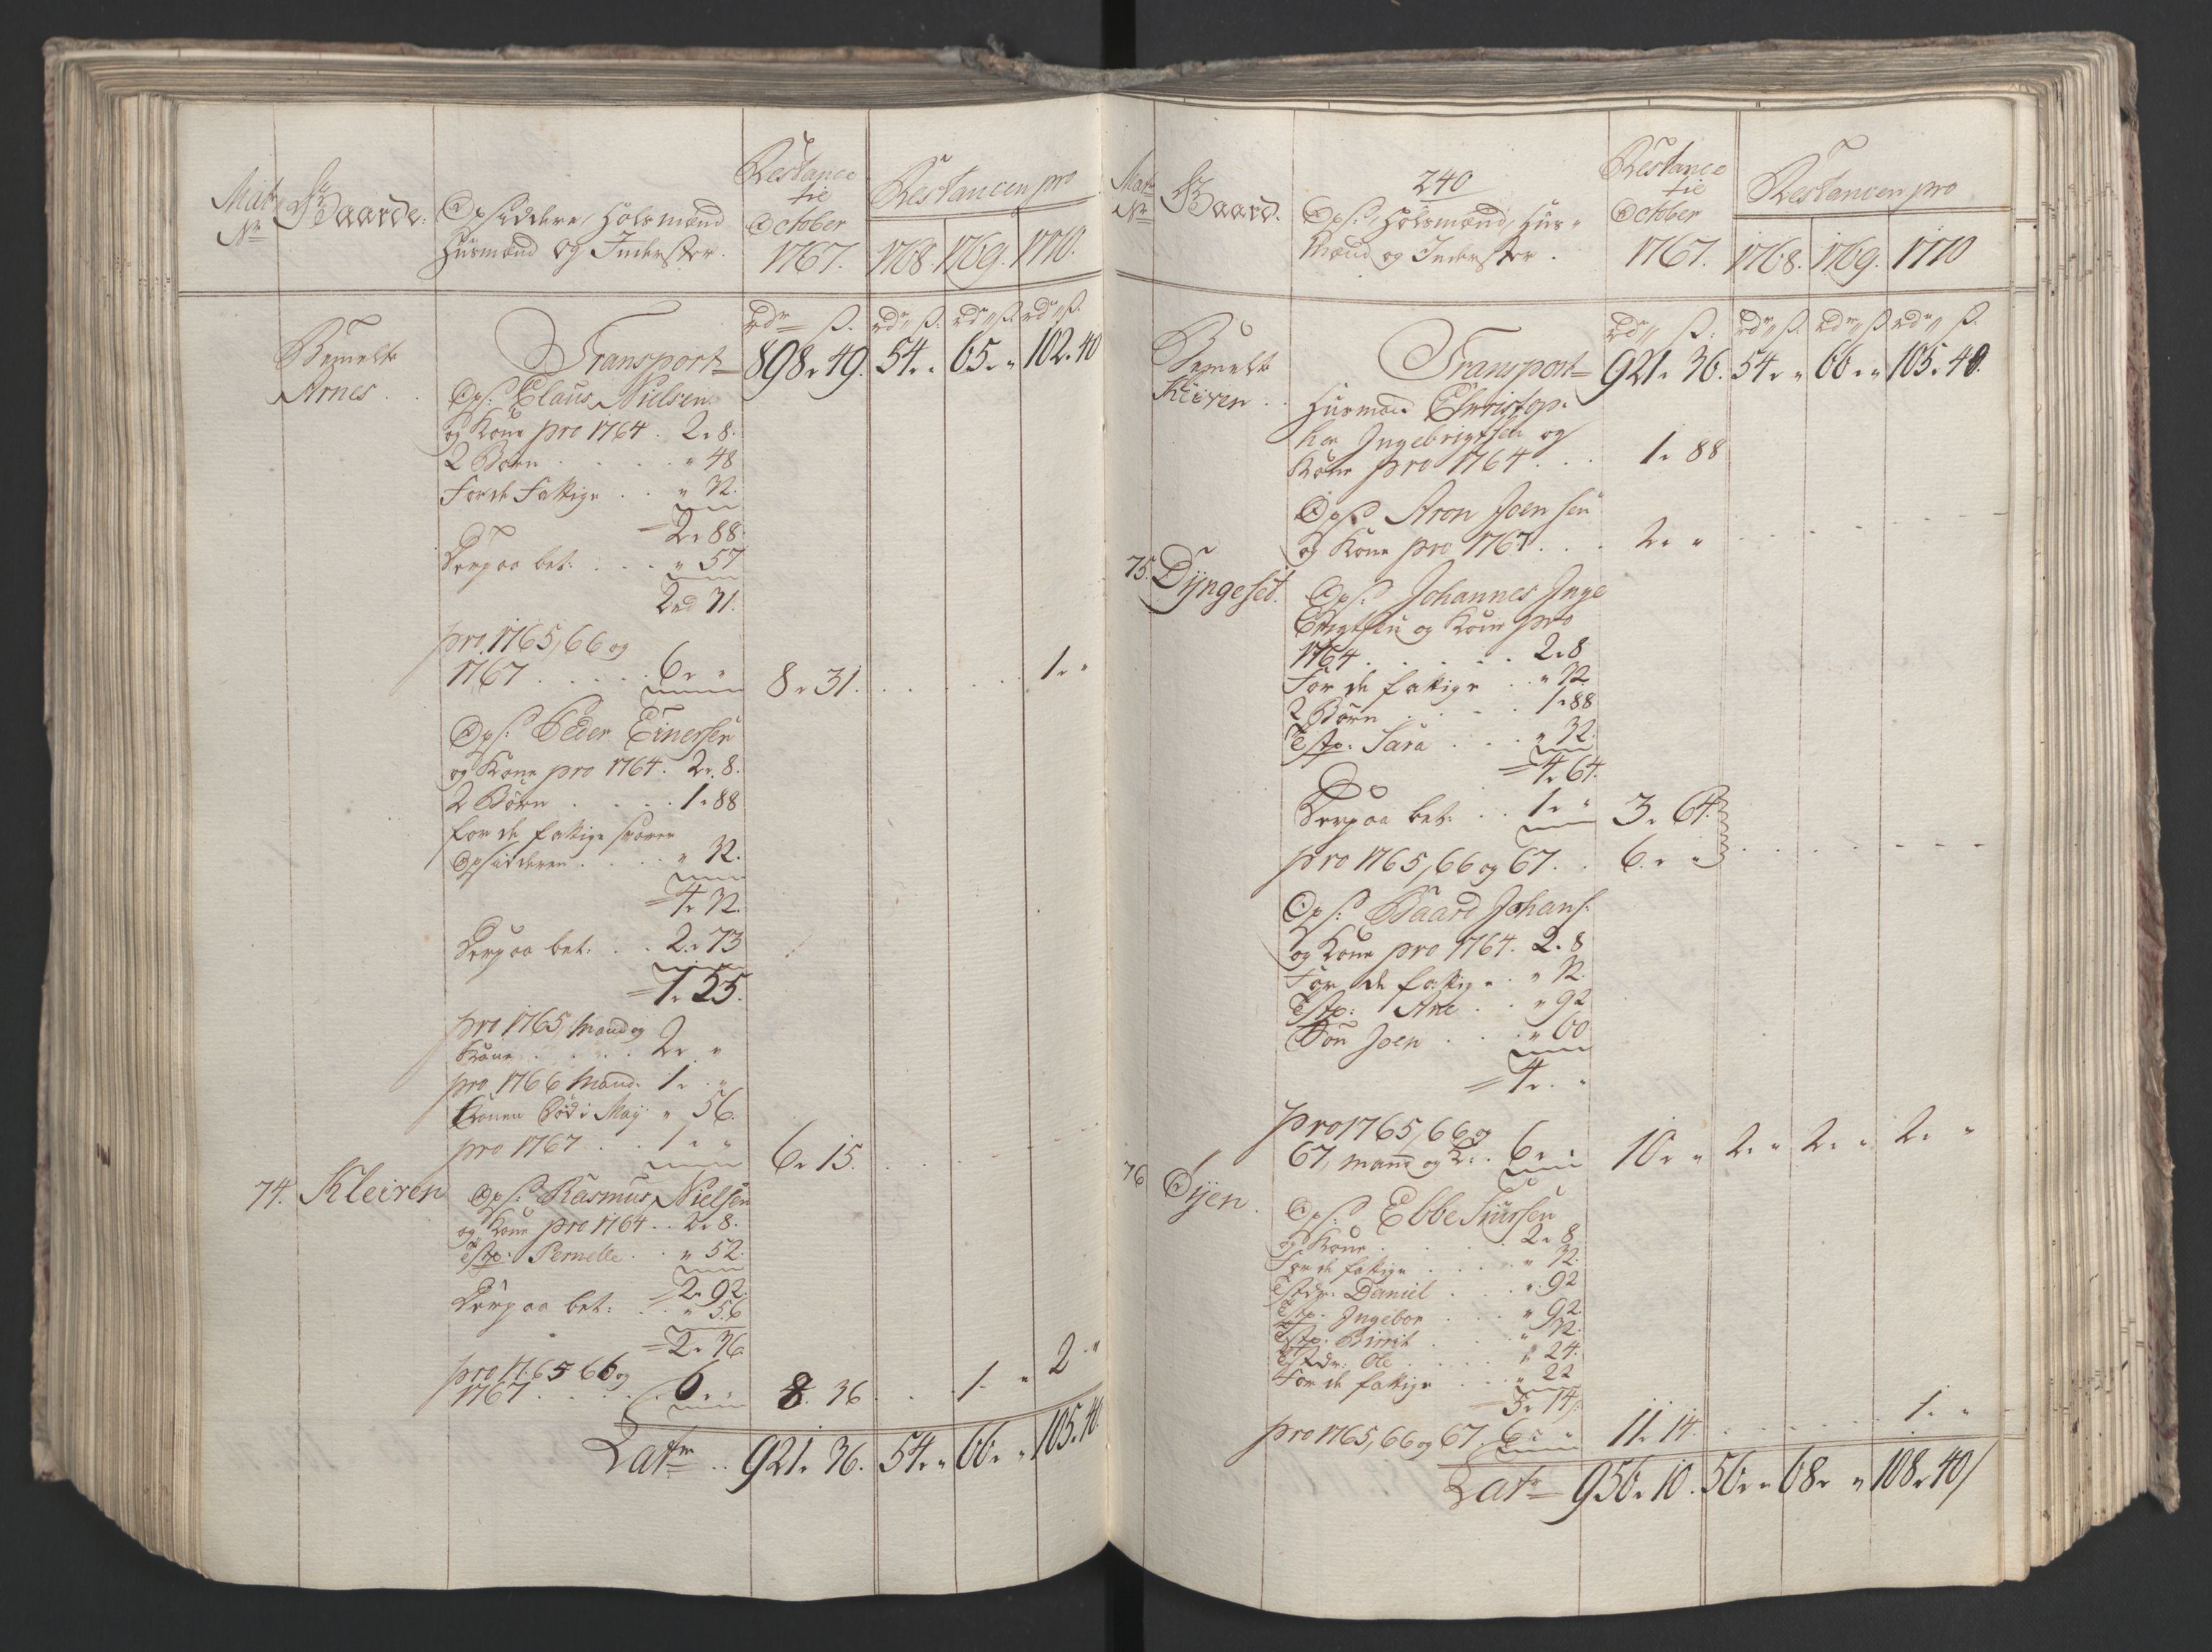 Mat: Nr
Gaarde:
Opsiddere, Holsmænd
Huusmænd og Inderster.
Restance
til
October
1767.
Restancen pro
1768. 1769. 1770.
rdr ß. rdr ß. rdr ß. rdr ß.
Bemelte
Arnes . .
Transport 898 " 49. 54 " " 65 " " 102 " 40
Ops: Claus Nielsen
og Kone pro 1764 . 2 " 8.
2 Børn . . . . " 48
For de Fattige . . " 32.
2 " 88.
Derpaa bet: . . . " 57
2rd 31.
pro 1765, 66 og
1767 . . . . . 6 " " 8 " 31. . . . . . 1 " "
Ops: Peder Einersen
og Kone pro 1764. 2 " 8.
2 Børn . . . . 1 " 88
for de fattige svarer
Opsidderen . . . " 32.
4 " 32.
Derpaa bet: . . 2 " 73
1 " 55.
pro 1765, Mand og
Kone . . . . 2 " "
pro 1766 Mand 1 " "
Konen Død i May " 56.
pro 1767 . . 1 " " 6 " 15.
74. Kleiven Ops: Rasmus Nielsen
og Kone pro 1764 . . 2 " 8.
Tstp: Pernelle . . " 52.
2 " 92.
Derpaa bet: . . " 56
2 " 36
pro 1765 66 og
1767 . . . . . 6 " " 8 " 36 . . . 1 " " 2 "
Latr . . 921 " 36. 54 " " 66 " " 105 " 40
Mat: Nr
Gaard.
240
Ops:, Holsmænd, Huus-
mænd og Inderster.
Restance
til
October
1767.
Restancen pro
1768. 1769. 1770
rdr ß. rdr ß. rdr ß. rdr ß.
Bemelte
Kleven . .
Transport 921 " 36. 54 " " 66 " " 105 " 40.
Huusmand Christop-
her Ingebrigtsen og
Kone pro 1764 . . . 1 " 88
Ops: Aron Joensen
og Kone pro 1767 . . . 2 " "
75. Dÿngeset. Ops: Johannes Inge
Brigtsen og Kone pro
1764 . . . . . . 2 " 8
For de fattige . . " 32
2 Børn . . . . 1 " 88
Tstp: Sara . . . " 32
4 " 64.
Derpaa bet: . . 1 " " 3 " 64.
pro 1765, 66 og 67 . . 6 " "
Ops: Baard Johans:
og Kone pro 1764. 2 " 8
For de fattige . . " 32.
Tstp: Ane . . " 92
Søn Joen . . . " 60
4 " "
pro 1765, 66 og
67, mand og K: . 6 " " 10 " " 2 " " 2 " " 2 " "
76 Øÿen. Ops: Ebbe Siursen
og Kone . . . . . 2 " 8
For de fattige . . . . " 32.
Tstdr: Daniel . . . " 92
Tstp: Ingebor . . . " 92.
Tstp: Birrit . . . " 32.
Tstdr: Ole . . . . " 24.
For de fattige . . . " 22
5 " 14.
pro 1765, 66 og 67. 6 " " 11 " 14. . . . . . 1 " "
Latr 956 " 10. 56 " " 68 " " 108 " 40/